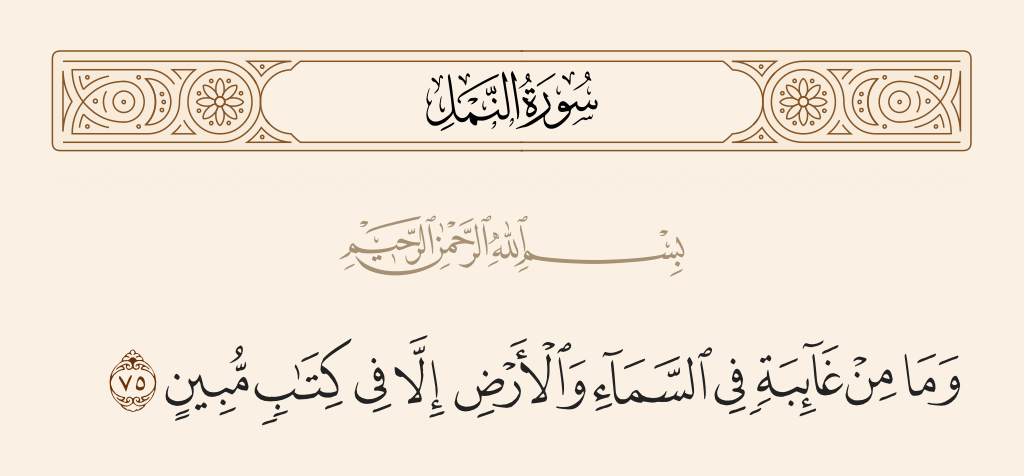 سُورَةُ النَّمْلِ
بِسْمِ ٱللَّهِ ٱلرَّحْمَٰنِ ٱلرَّحِيمِ
وَمَا مِنْ غَآئِبَةٍ فِى ٱلسَّمَآءِ وَٱلْأَرْضِ إِلَّا فِى كِتَٰبٍ مُّبِينٍ ٧٥